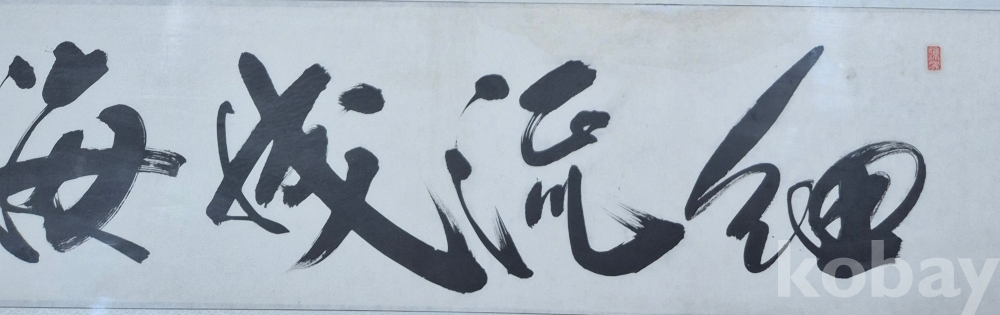 細流成海
kobay